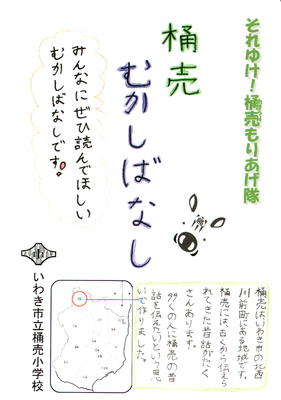 それゆけ！桶売もりあげ隊
桶売
むかしばなし
みんなにぜひ読んでほしい
むかしばなしです。
桶売はいわき市の北西
川前町にある地域です。
桶売には、古くから伝えら
れてきた昔話がたく
さんあります。
多くの人に桶売の昔
話を伝えたいという思
いで作りました。
いわき市立桶売小学校